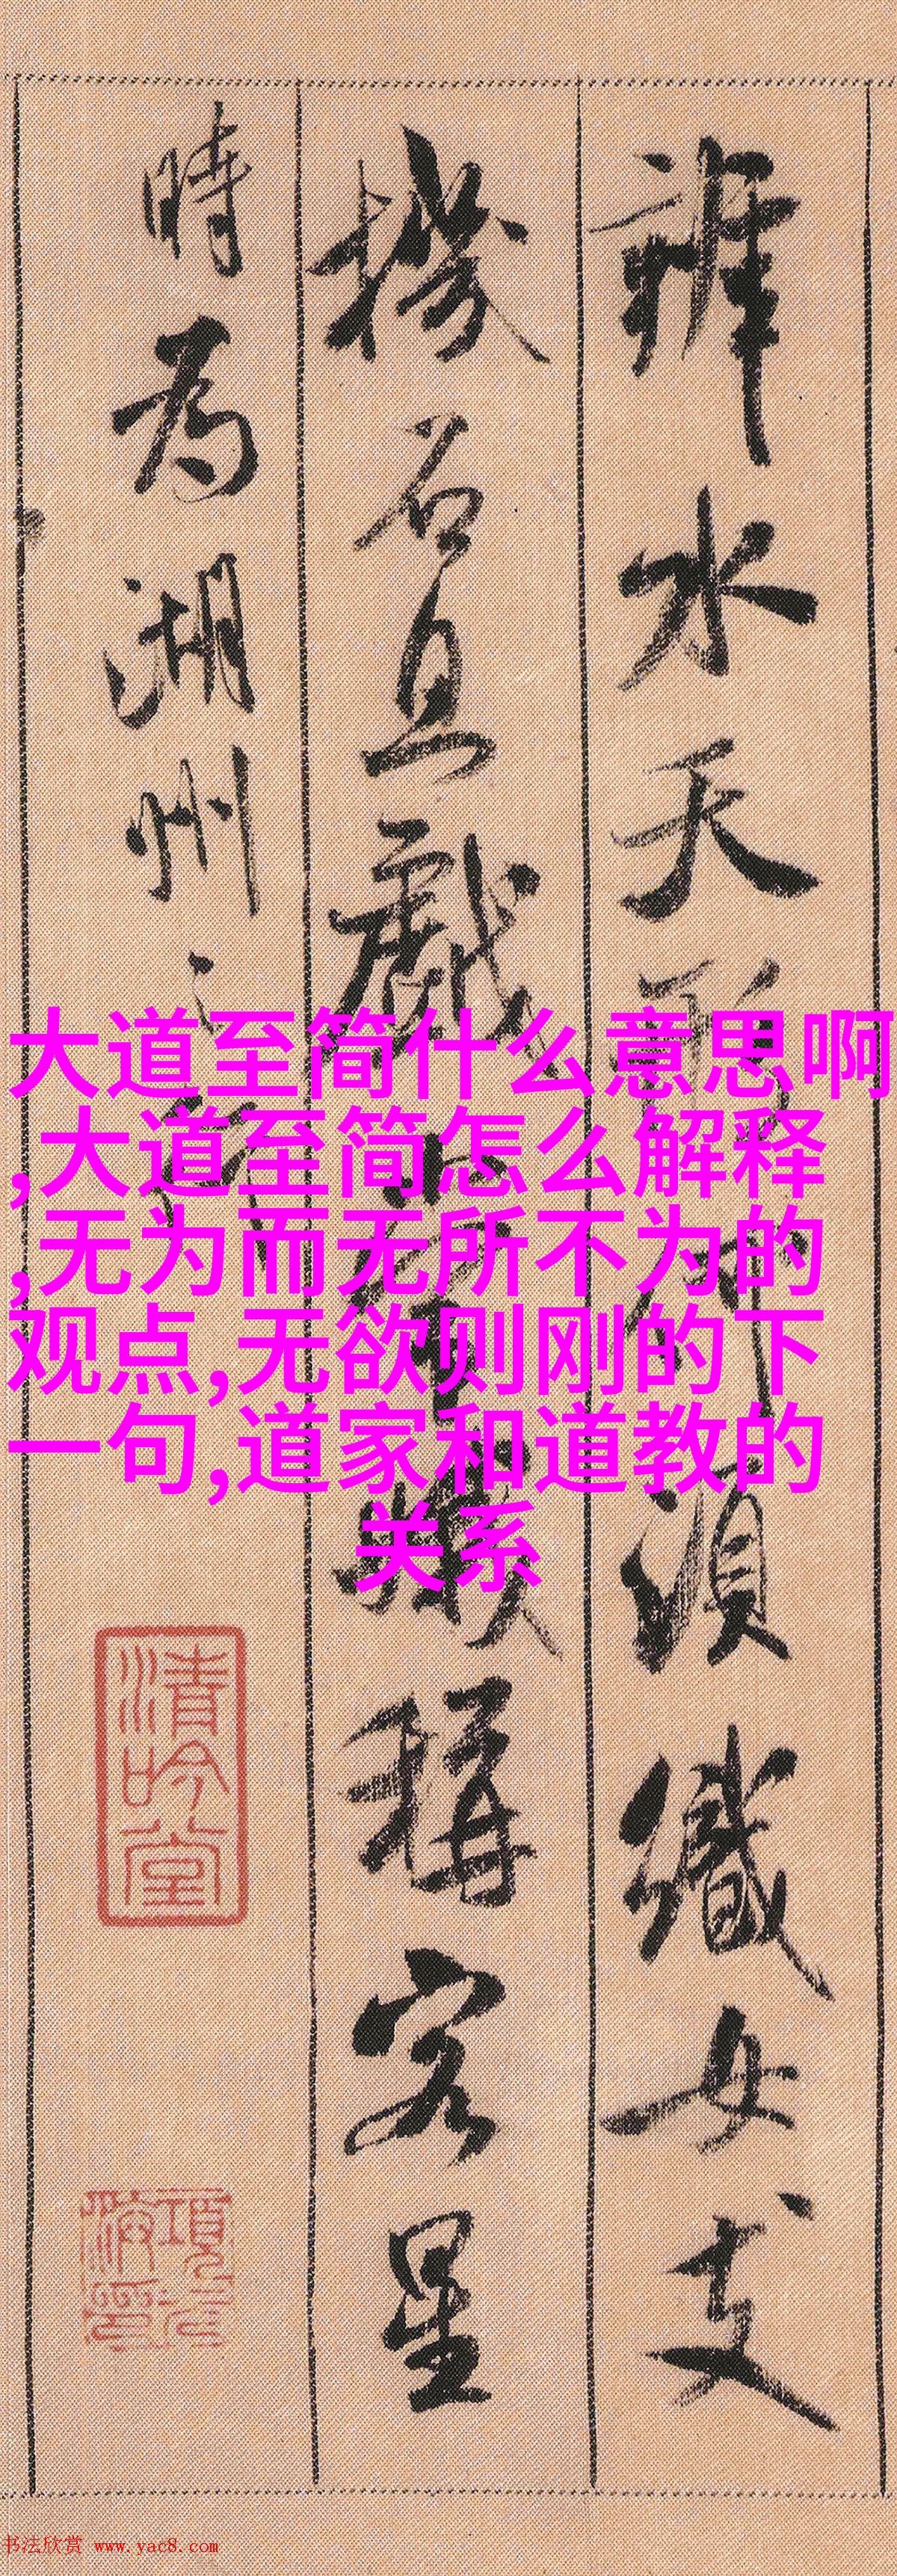 漼水天形何須織女支
機石且戲常娥稱客星
時為湖州之行
大道至简什么意思啊
,大道至简怎么解释
,无为而无所不为的
观点,无欲则刚的下
一句,道家和道教的
关系
清吟堂
书法欣赏 www.yac8.com